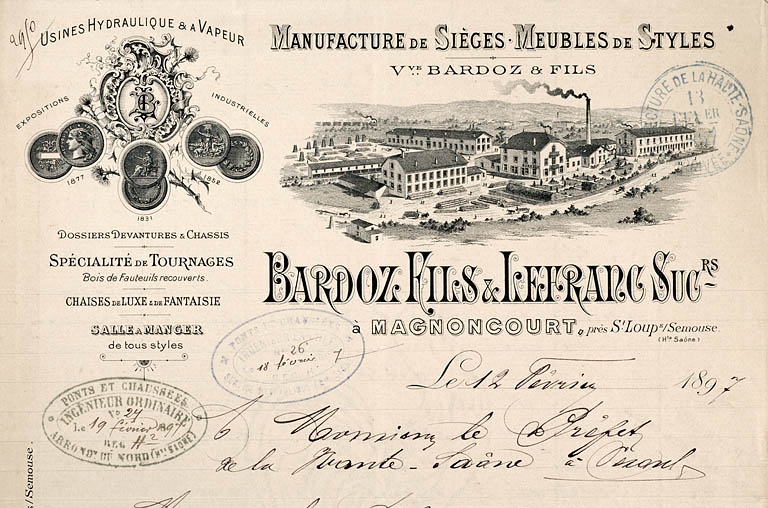 2950
USINES HYDRAULIQUE & À VAPEUR
EXPOSITIONS
INDUSTRIELLES
B
1877
1831
1852
DOSSIERS DEVANTURES & CHASSIS
SPÉCIALITÉ DE TOURNAGES
Bois de Fauteuils recouverts.
CHAISES DE LUXE & DE FANTAISIE
SALLE A MANGER
de tous styles
MANUFACTURE DE SIÈGES - MEUBLES DE STYLES
Vve BARDOZ & FILS
BARDOZ FILS & LEFRANC SUCRS
à MAGNONCOURT, près St Loup s/Semouse.
(Hte Saône)
DE LA HAUTE-SAÔNE
13
PONTS ET CHAUSSÉES
26
18 février 7
PONTS ET CHAUSSÉES
INGÉNIEUR ORDINAIRE
No 24
Le 19 février 1897
REG H2
ARRONDt DU NORD (Hte SAÔNE)
Le 12 Février 1897
Monsieur le Préfet
de la Haute-Saône à Vesoul
s/Semouse.